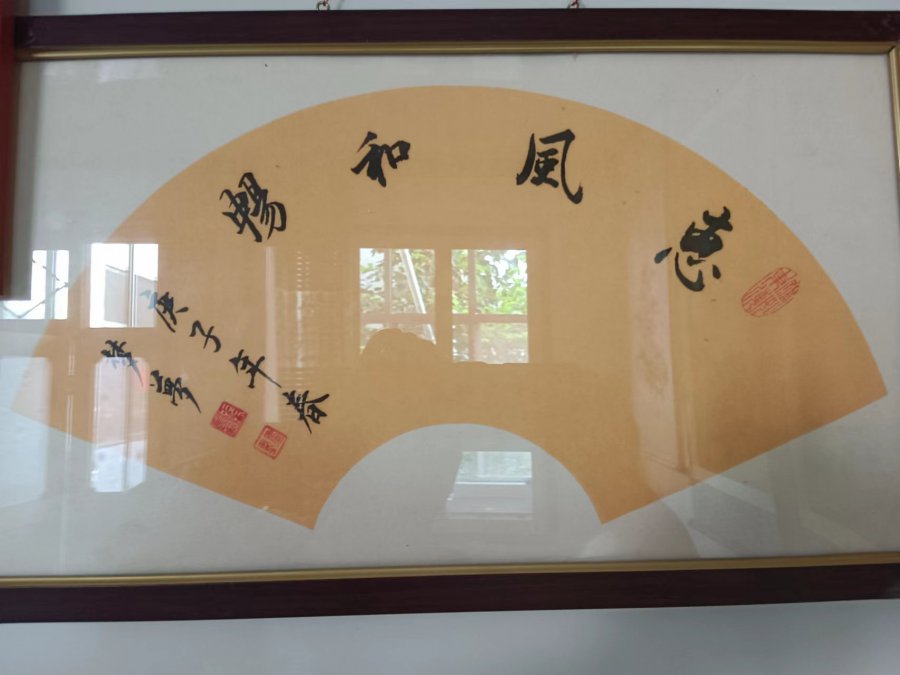 惠风和暢
庚子年春